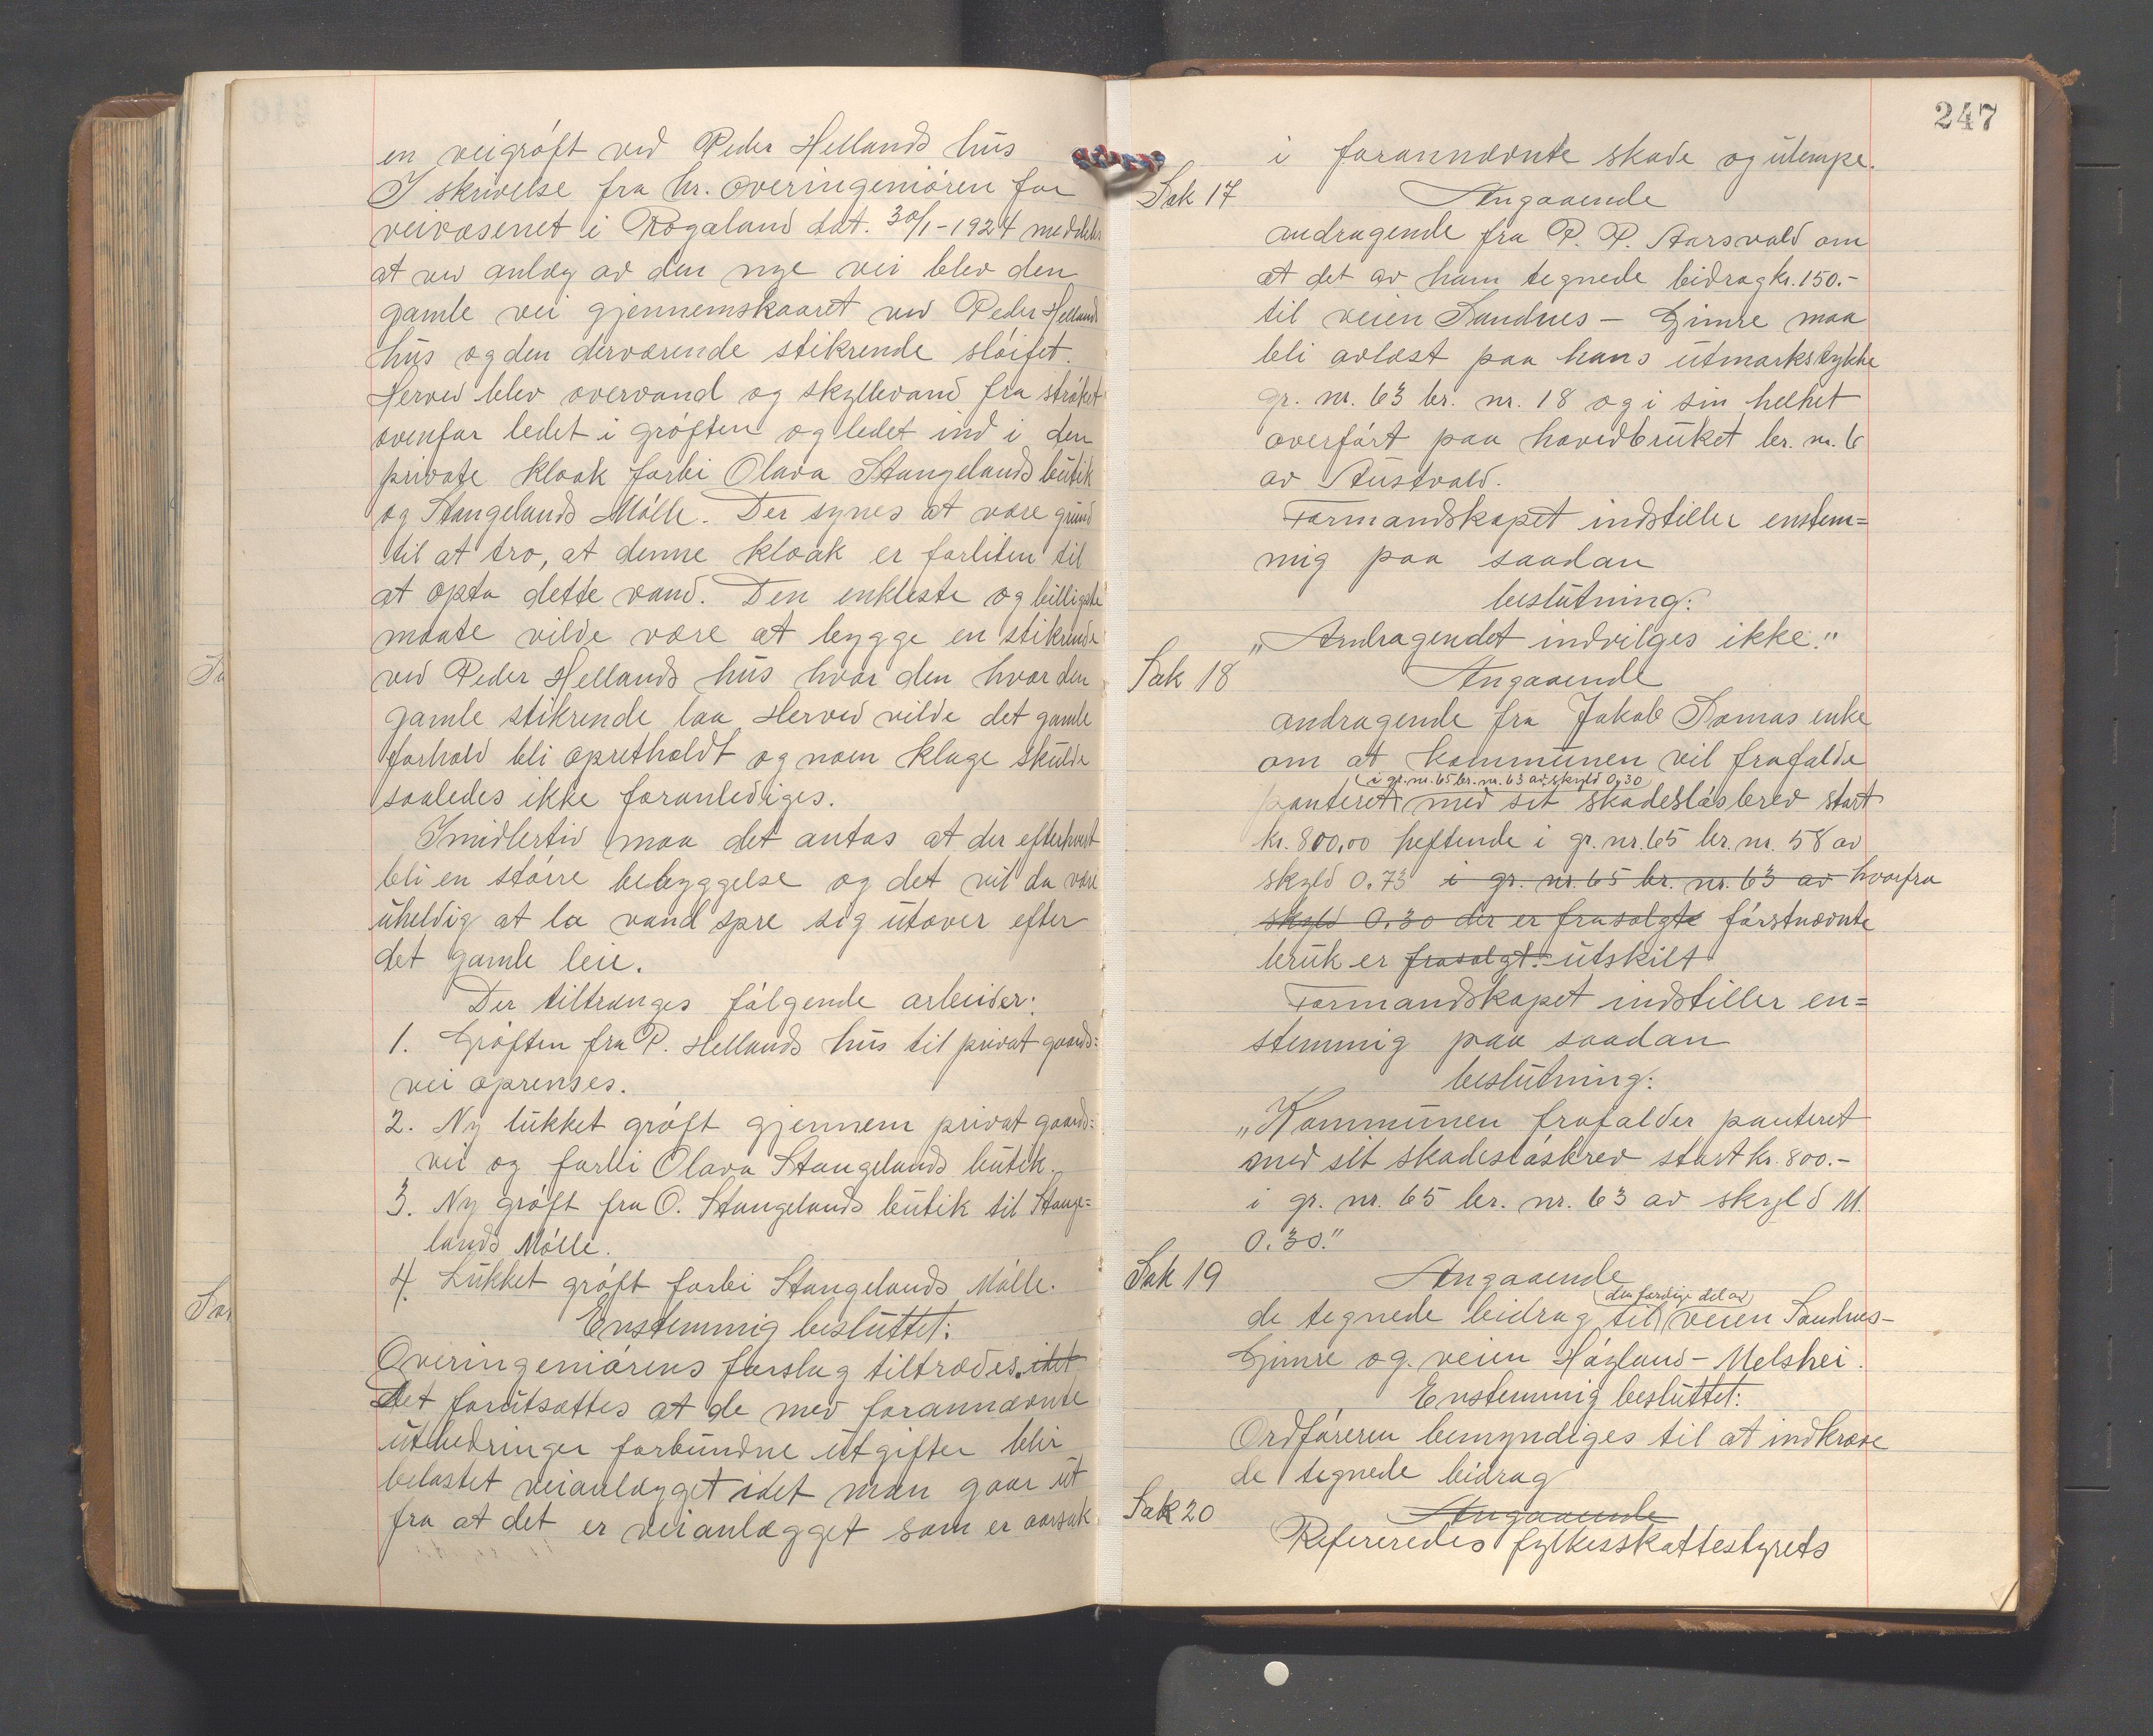 en veigrøft ved Peder Hellands hus
I skrivelse fra hr. overingeniøren for
veivæsenet i Rogaland dat. 30/1-1924 meddeles
at ved anlæg av den nye vei blev den
gamle vei gjennemskaaret ved Peder Hellands
hus og den derværende stikrende sløifet.
Herved blev overvand og skyllevand fra strøket
ovenfor ledet i grøften og ledet ind i den
private kloak forbi Olava Stangelands butik
og Stangelands Mølle. Der synes at være grund
til at tro, at denne kloak er forliten til
at opta dette vand. Den enkleste og billigste
maate vilde være at bygge en stikrende
ved Peder Hellands hus hvor den hvor den
gamle stikrende laa. Herved vilde det gamle
forhold bli opretholdt og noen klage skulde
saaledes ikke foranlediges.
Imidlertid maa det antas at der efterhvert
bli en større bebyggelse og det vil da være
uheldig at la vand spre sig utover efter
det gamle leie.
Der tiltrænges følgende arbeider:
1. Grøften fra P. Hellands hus til privat gaards=
vei oprenses.
2. Ny lukket grøft gjennem privat gaards=
vei og forbi Olava Stangelands butik.
3. Ny grøft fra O. Stangelands butik til Stange=
lands Mølle.
4. Lukket grøft forbi Stangelands Mølle.
Enstemmig besluttet:
Overingeniørens forslag tiltrædes. idet
Det forutsættes at de med forannævnte
utbedringer forbundne utgifter blir
belastet veianlægget idet man gaar ut
fra at det er veianlægget som er aarsak
247
i forannævnte skade og ulempe.
Sak 17
Angaaende
andragende fra P. P. Aarsvold om
at det av ham tegnede bidrag kr. 150.-
til veien Sandnes - Gimre maa
bli avløst paa hans utmarkstykke
gr. nr. 63 br. nr. 18 og i sin helhet
overført paa hovedbruket br. nr. 6
av Austvold.
Formandskapet indstiller enstem=
mig paa saadan
beslutning:
"Andragendet indvilges ikke."
Sak 18
Angaaende
andragende fra Jakob Somas enke
om at kommunen vil frafalde
i gr. nr. 65 br. nr. 63 av skyld 0,30
panteret med sit skadesløsbrev stort
kr. 800,00 heftende i gr. nr. 65 br. nr. 58 av
skyld 0.73 i gr. nr. 65 br. nr. 63 av hvorfra
skyld 0.30 der er frasolgte førstnævnte
bruk er frasolgt. utskilt
Formandskapet indstiller en=
stemmig paa saadan
beslutning:
"Kommunen frafalder panteret
med sit skadesløsbrev stort kr. 800.-
i gr. nr. 65 br. nr. 63 av skyld M.
0.30."
Sak 19
Angaaende
den færdige del av
de tegnede bidrag til veien Sandnes-
Gimre og veien Høyland - Melshei.
Enstemmig besluttet:
Ordføreren bemyndiges til at indkræve
de tegnede bidrag
Sak 20
Angaaende
Refereredes fylkesskattestyrets